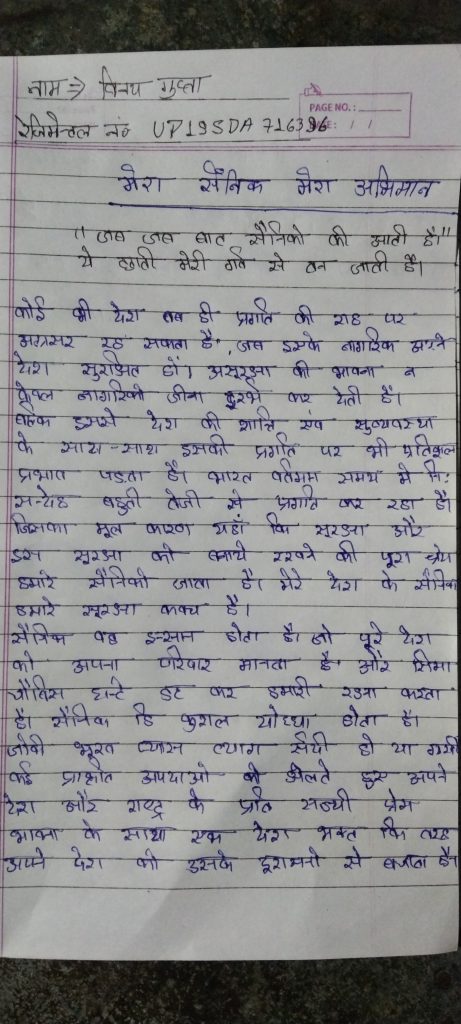 नाम => विनय गुप्ता
PAGE NO.:
रेजिमेन्टल नं० UP19SDA 716396
मेरा सैनिक मेरा अभिमान
"जब जब बात सैनिको की आती है।"
ये छाती मेरी गर्व से तन जाती है।
कोई भी देश तब ही प्रगति की राह पर
अग्रसर रह सकता है, जब इसके नागरिक अपने
देश सुरक्षित हों। असुरक्षा की भावना न
केवल नागरिको जीना दुर्लभ कर देती है।
बल्कि इससे देश की शान्ति एवं सुव्यवस्था
के साथ-साथ इसकी प्रगति पर भी प्रतिकूल
प्रभाव पड़ता है। भारत वर्तमान समय मे निः
सन्देह बहुती तेजी से प्रगति कर रहा है।
जिसका मूल कारण यहाँ कि सुरक्षा और
इस सुरक्षा को बनाये रखने की पूरा श्रेय
हमारे सैनिको जाता है। मेरे देश के सैनिक
हमारे सुरक्षा कवच है।
सैनिक वह इन्सान होता है। जो पूरे देश
को अपना परिवार मानता है और सिमा
चौबिस घन्टे डट कर हमारी रक्षा करता
है। सैनिक हि कुशल योध्धा होता है।
जोकी भूख प्यास त्याग सर्दी हो या गर्मी
कई प्राकृति आपदाओ को झेलते हुए अपने
देश और राष्ट्र के प्रति सच्ची प्रेम
भावना के साथ एक देश भक्त कि तरह
अपने देश को इसके दुश्मनो से बचाता है।